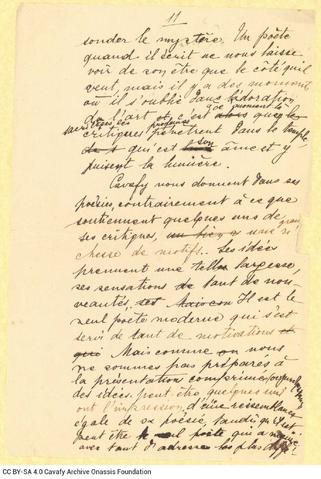 11
sonder le mystère. Un poète
quand il écrit ne nous laisse
voir de son être que le côté qu'il
veut, mais il y a des moments
où il s'oublie dans l'adoration
de l'art et c'est que
critiques pénètrent dans le temple,
qui est son âme et y
puisent la lumière.
Cavafy nous donnent dans ses
poésies, contrairement à ce que
soutiennent quelques uns de
ses critiques, une ri
chesse de motifs. Ses idées
prennent une telle largesse,
ses sensations de tant de nou-
veautés, Il est le
seul poète moderne qui s'est
servi de tant de motivations
Mais comme nous
ne sommes pas préparés à
la présentation comprimée
des idées, peut être quelques uns
ont l'impression d'une ressemblance
égale de sa poésie, tandis qu'il est
peut être le seul poète qui a
avec tant d'adresse les plus
CC BY-SA 4.0 Cavafy Archive Onassis Foundation